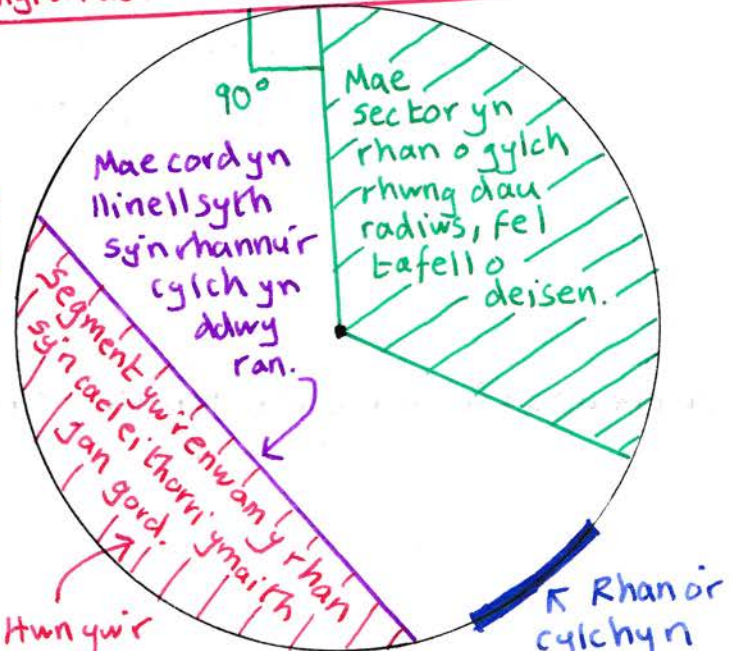 90°
Mae
sector yn
rhan o gylch
rhwng dau
radiws, fel
tafell o
deisen.
Mae cord yn
llinell syth
sy'n rhannu'r
cylch yn
ddwy
ran.
Segment yw'r enw am y rhan
sy'n cael ei thorri ymaith
gan gord.
Hwn yw'r
Rhan o'r
cylchyn